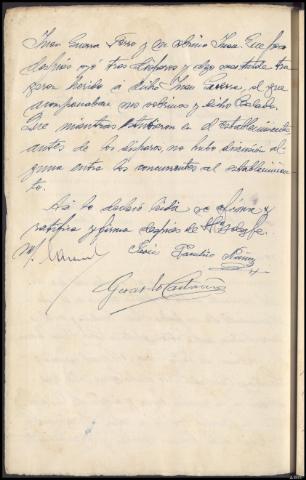 Juan Guerra Fero y su sobrino Juan. Que poco
después oyó tres disparos y algo mas tarde tra
jeron herido a dicho Juan Guerra, al que
acompañaban sus sobrinos y dicho
Que mientras estuvieron en el establecimiento
antes de los disparos, no hubo discusión al
guna entre los concurrentes al establecimien
to.
Así lo declaró leida se afirma y
ratifica y firma después de
Jesús Núñez
Gerardo Castaño